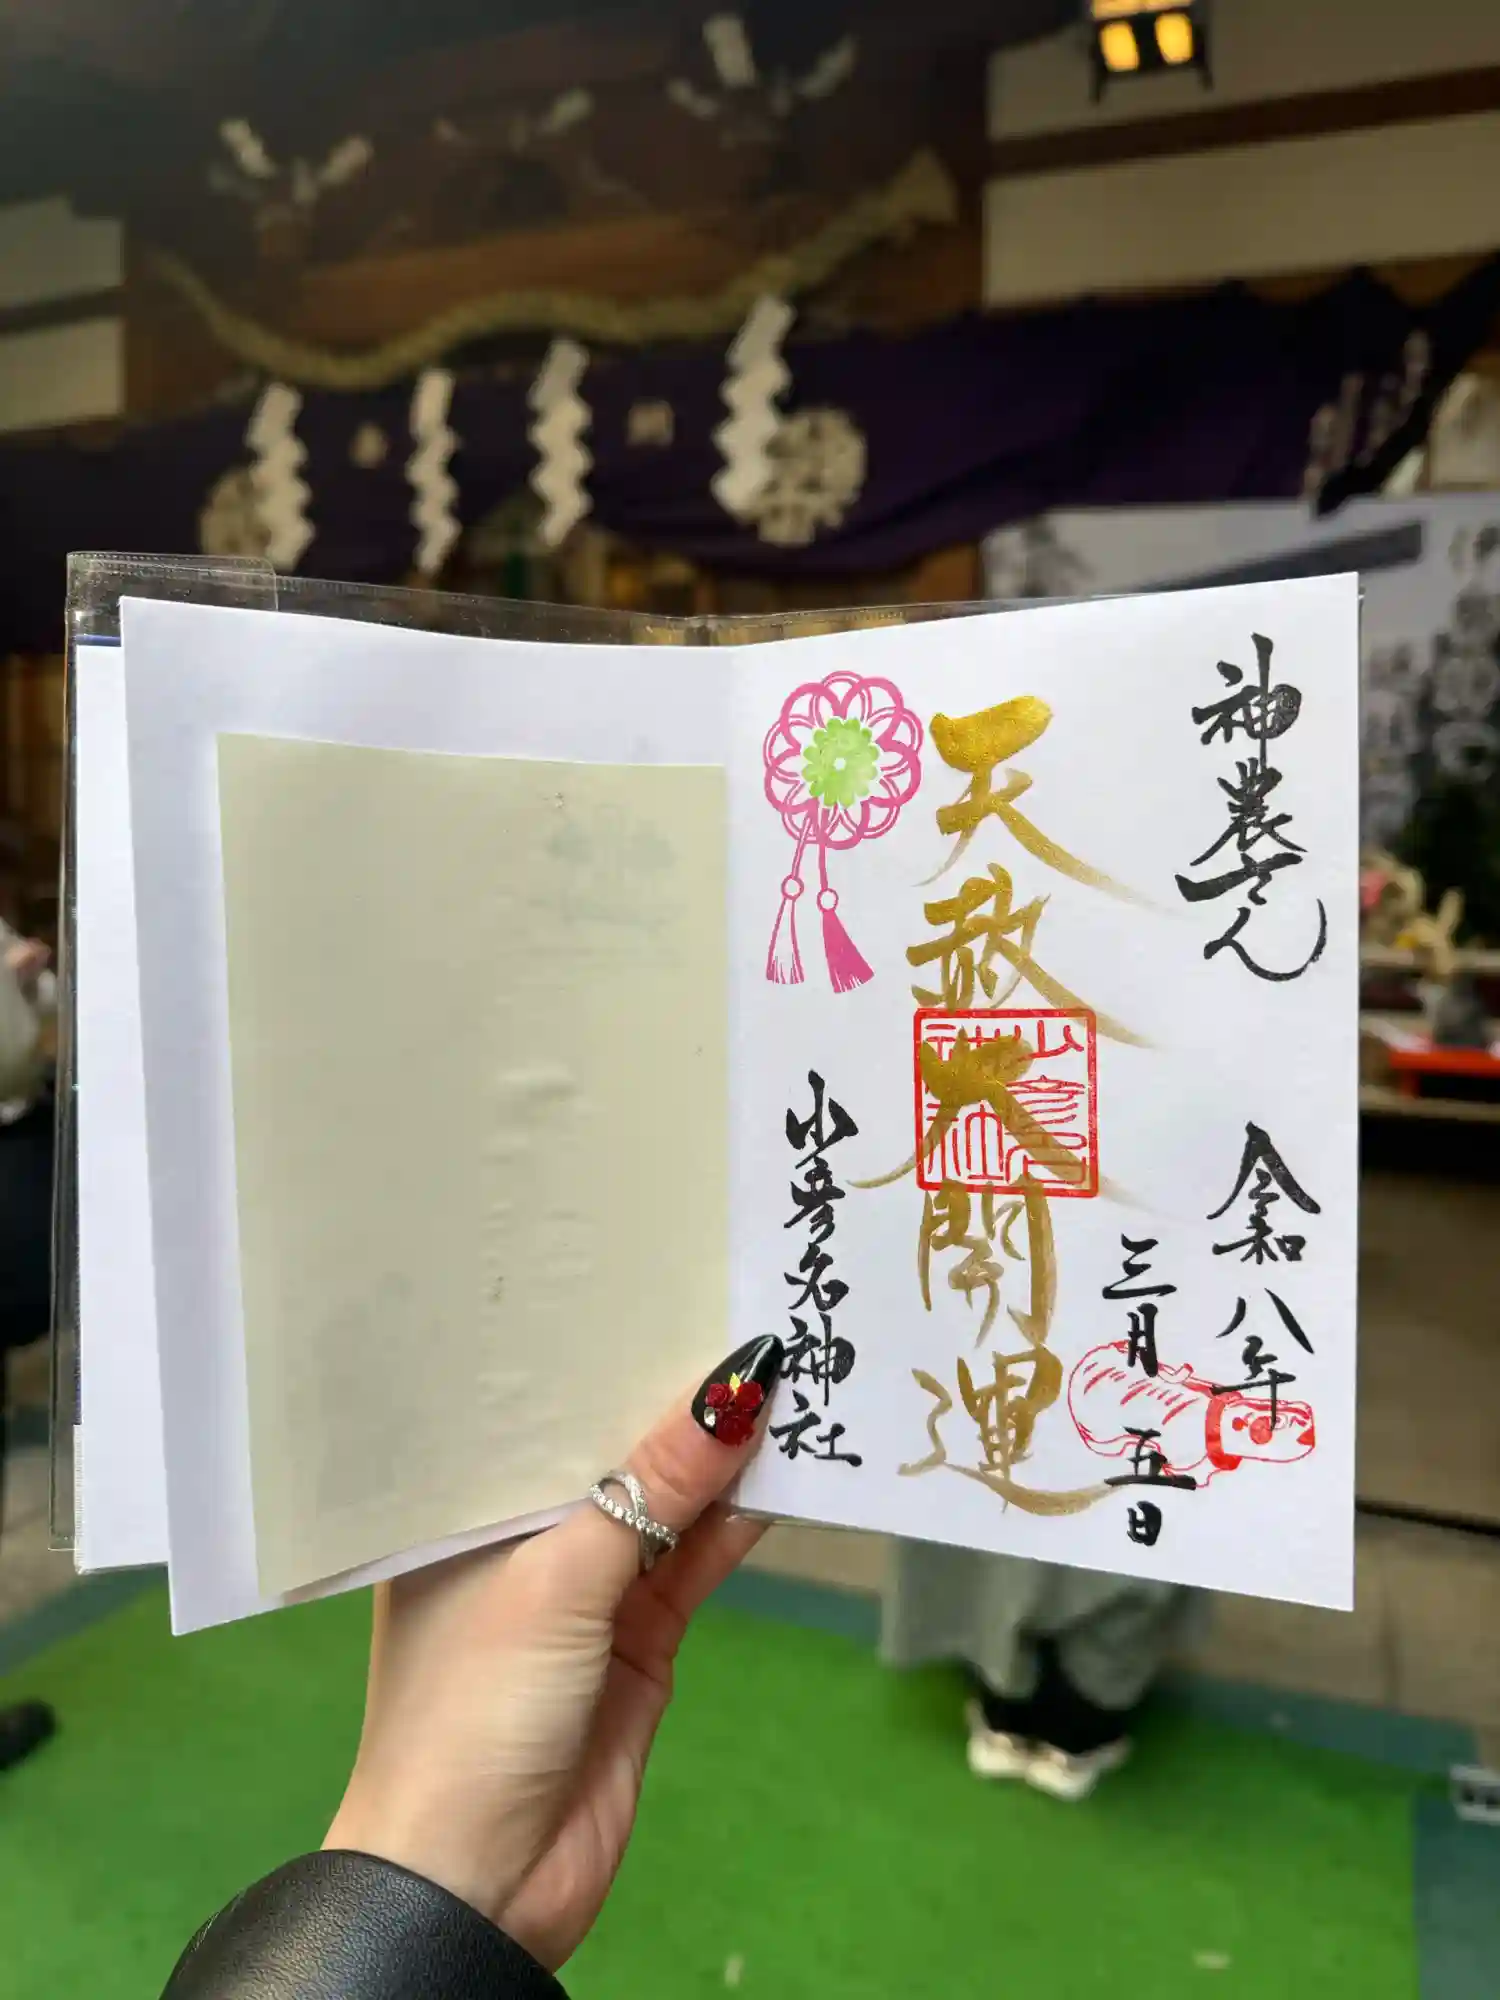 神農さん
令和八年
三月五日
天赦大開運
少彦名神社
少彦名
神社